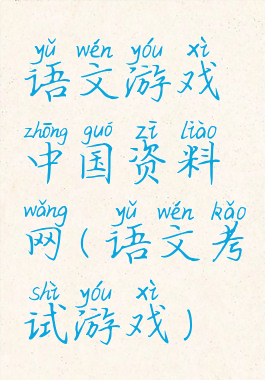 yǔ wén yóu xì
语文游戏
zhōng guó zī liào
中国资料
wǎng yǔ wén kǎo
网(语文考
shì yóu xì
试游戏)